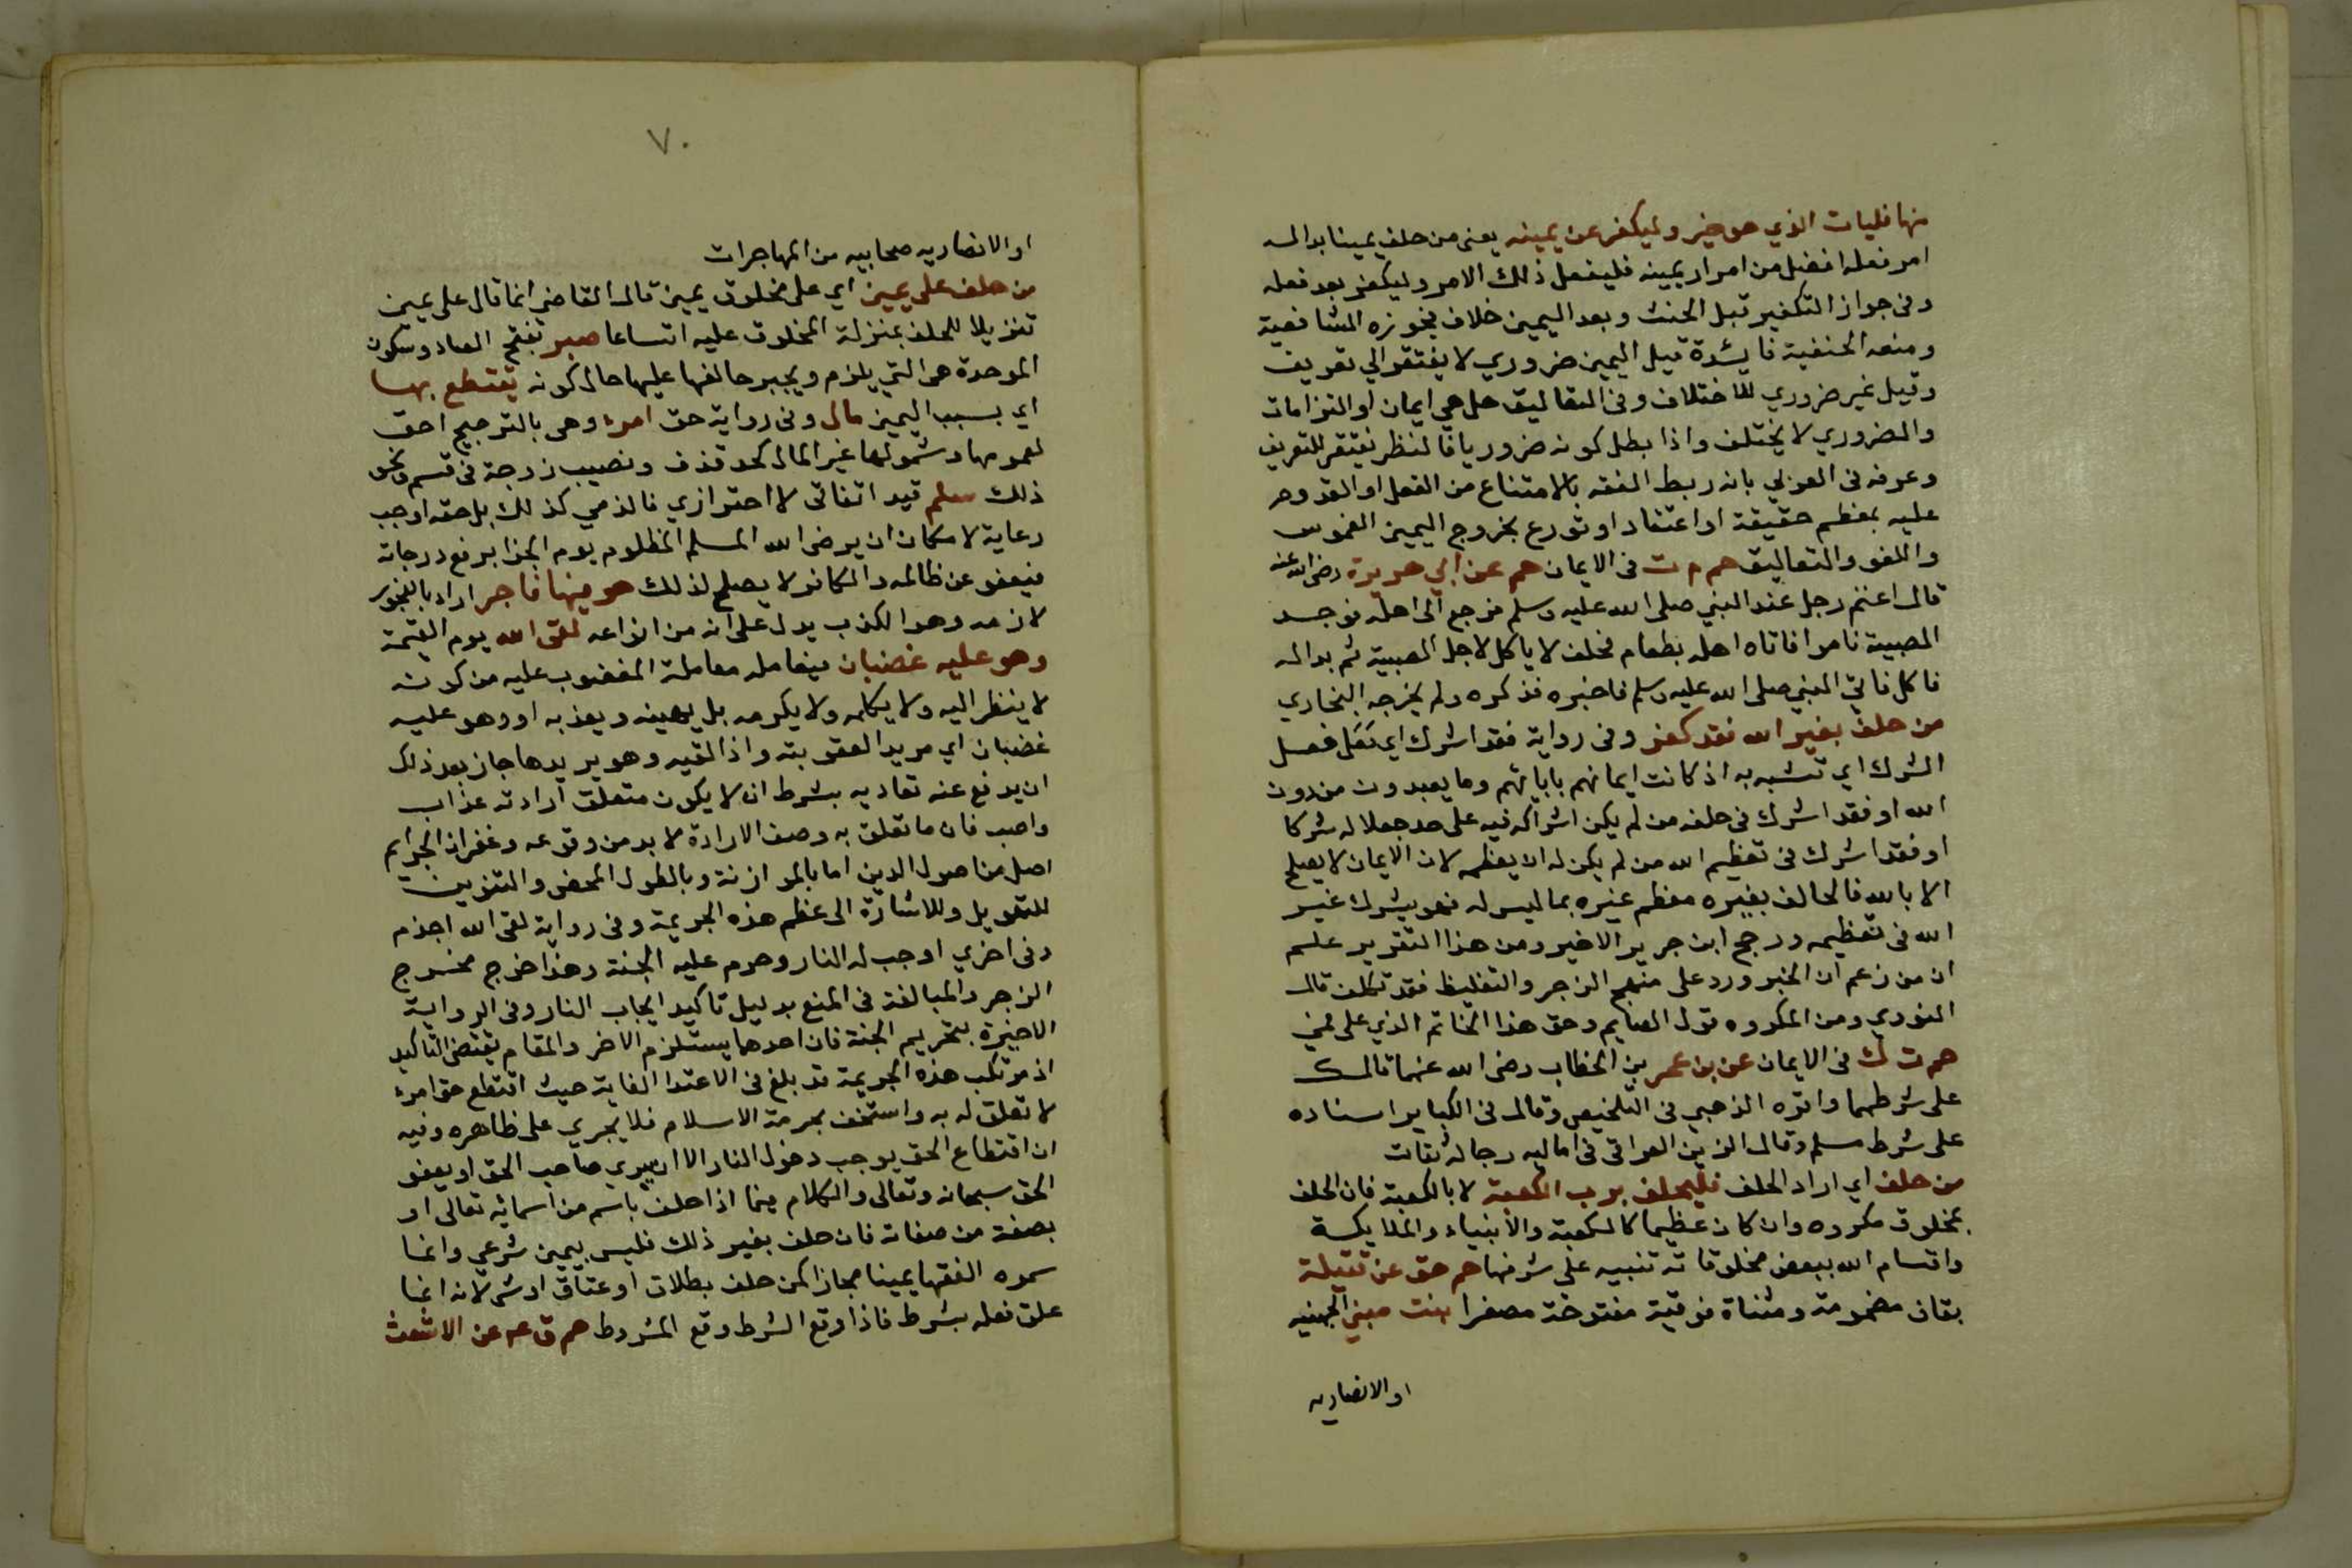 منها فليات الذي هو خير وليكفر عن يمينه يعني من حلف يمينا بدا له
امر فعله افضل من امرار يمينه فليفعل ذلك الامر وليكفر بعد فعله
وفي جواز التكفير قبل الحنث وبعد اليمين خلاف فجوزه الشافعية
ومنعه الحنفية فايدة قيل اليمين ضروري لا يفتقر الي تعريف
وقيل غير ضروري للاختلاف وفي التعاليق هل هي ايمان او التزامات
والضروري لا يختلف واذا بطل كونه ضروريا فالنظر يفتقر للتعريف
وعرفه في العربي بانه ربط العقد بالامتناع من الفعل او القدوم
عليه بمعظم حقيقة او اعتقادا وتورع بخروج اليمين الغموس
واللغو والتعاليق حم م ت في الايمان حم عن ابي هريرة رضي الله عنه
قال اعتم رجل عند النبي صلى الله عليه وسلم فرجع الى اهله فوجد
الصبية ناموا فاتاه اهله بطعام فحلف لا ياكل لاجل الصبية ثم بدا له
فاكل فاتي النبي صلى الله عليه وسلم فاخبره فذكره ولم يخرجه البخاري
من حلف بغير الله فقد كفر وفي رواية فقد اشرك اي فعل فعل
الشرك اي تشبه به اذ كانت ايمانهم بابايهم وما يعبدون من دون
الله او فقد اشرك في حلفه من لم يكن اشراكه فيه على حد جعلا له شركا
او فقد اشرك في تعظيم الله من لم يكن له ان يعظمه لان الايمان لا يصلح
الا بالله فالحالف بغيره معظم غيره بما ليس له فهو يشرك غير
الله في تعظيمه ورجح ابن جرير الاخير ومن هذا التقرير علم
ان من زعم ان الخبر ورد على منهج الزجر والتغليظ فقد تكلف قال
النووي ومن المكروه قول الصايم وحق هذا الخاتم الذي على فمي
حم ت ك في الايمان عن بن عمر بن الخطاب رضي الله عنهما قال ك
على شرطهما واقره الذهبي في التلخيص وقال في الكباير اسناده
على شرط مسلم وقال الزين العراقي في اماليه رجاله ثقات
من حلف اي اراد الحلف فليحلف برب الكعبة لا بالكعبة فان الحلف
بمخلوق مكروه وان كان عظيما كالكعبة والأنبياء والملايكة
واقسام الله ببعض مخلوقاته تنبيه على شرفها حم حق عن قتيلة
بقاف مضمومة ومثناة فوقية مفتوحة مصغرا بنت صيفي الجهنيه
او الانصاريه
٧٠
او الانصاريه صحابيه من المهاجرات
من حلف على يمين اي على مخلوق يمين قال القاضي انما قال على يمين
تنزيلا للحلف بمنزلة المخلوق عليه اتساعا صبر بفتح الصاد وسكون
الموحدة هي التي يلزم ويجبر حالفها عليها حال كونه يقتطع بها
اي بسبب اليمين مال وفي رواية حق امرء وهي بالترجيح احق
لعمومها وشمولها غير المال كحد قذف ونصيب زوجة في قسم ونحو
ذلك مسلم قيد اتفاقي لا احترازي فالذمي كذلك بل حقه اوجب
رعاية لامكان ان يرضي الله المسلم المظلوم يوم الجزا برفع درجاته
فيعفو عن ظالمه والكافر لا يصلح لذلك هو فيها فاجر اراد بالفجور
لازمه وهو الكذب يدل على انه من انواعه لقى الله يوم القيمة
وهو عليه غضبان فيعامله معاملة المغضوب عليه من كونه
لا ينظر اليه ولا يكلمه ولا يكرمه بل يهينه ويعذبه او وهو عليه
غضبان اي مريد العقوبته واذا لقيه وهو يريدها جاز بعد ذلك
ان يدفع عنه تعاديه بشرط ان لا يكون متعلق ارادته عذاب
واصب فان ما تعلق به وصف الارادة لا بد من وقوعه وغفران الجرايم
اصل من اصول الدين اما بالموازنة وبالطول المحض والتنوين
للتهويل وللاشارة الى عظم هذه الجريمة وفي رواية لقى الله اجذم
وفي اخري اوجب له النار وحرم عليه الجنة وهذا خرج مخرج
الزجر والمبالغة في المنع بدليل تاكيد ايجاب النار وفي الرواية
الاخيرة بتحريم الجنة فان احدهما يستلزم الاخر والمقام يقتضي التاكيد
اذ مرتكب هذه الجريمة قد بلغ في الاعتدا الغاية حيث اقتطع حق امرء
لا تعلق له به واستخف بحرمة الاسلام فلا يجري على ظاهره وفيه
ان اقتطاع الحق يوجب دخول النار الا ان يبري صاحب الحق او يعفو
الحق سبحانه وتعالى والكلام فيما اذا حلف باسم من اسمائه تعالى او
بصفة من صفاته فان حلف بغير ذلك فليس بيمين شرعي وانما
سموه الفقها يمينا مجازا كمن حلف بطلاق او عتاق او شي لانه انما
علق فعله بشرط فاذا وقع الشرط وقع المشروط حم ق عه عن الاشعث